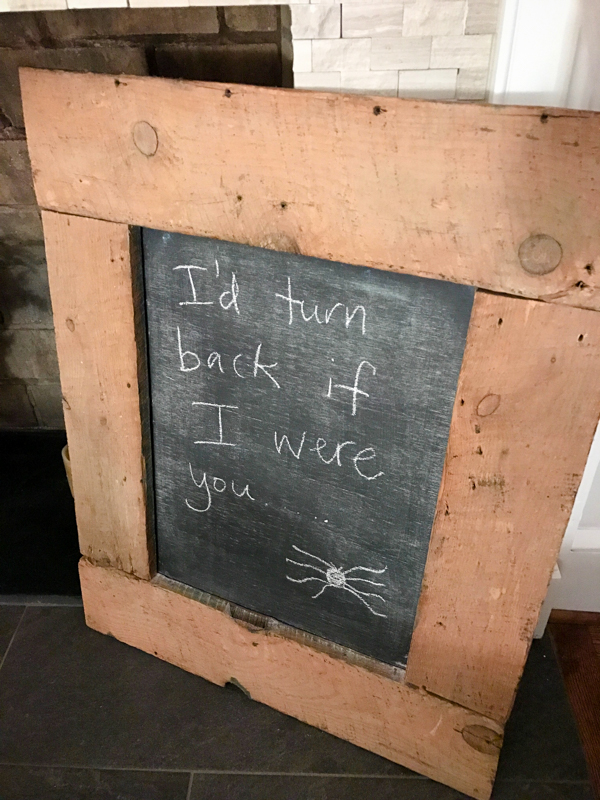 I'd turn
back if
I were
you.....